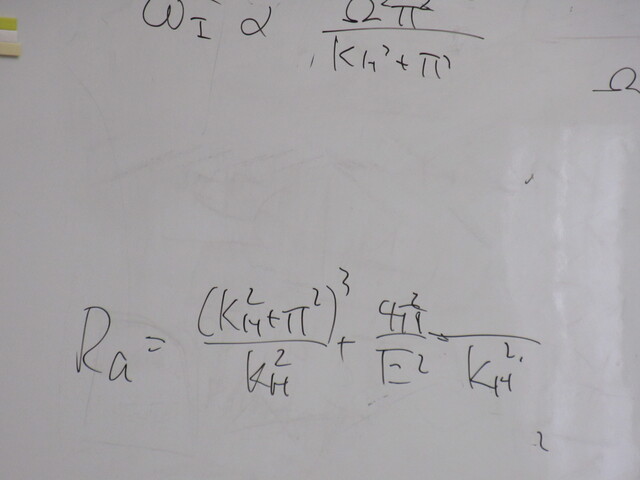 ω_I ∝ Ω²π² / K_H² + π²
Ω
Ra = (K_H² + π²)³ / K_H² + 4π² / E² — / K_H²
2